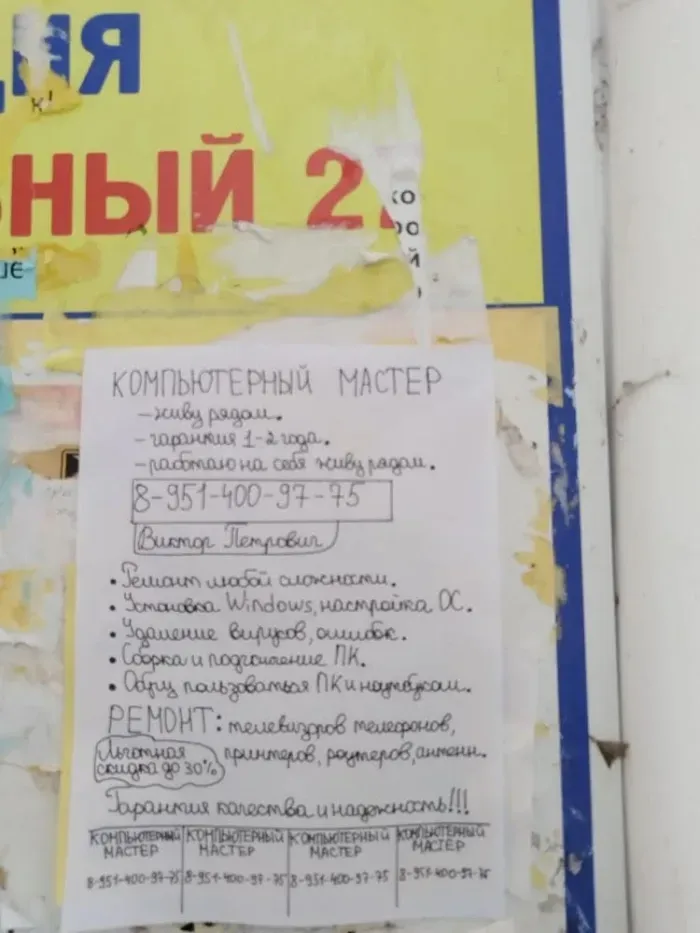 ция
к!
ьный 2
ко
ро
й
ше
КОМПЬЮТЕРНЫЙ МАСТЕР
-живу рядом.
-гарантия 1-2 года.
-работаю на себя живу рядом.
8-951-400-97-75
Виктор Петрович
• Ремонт любой сложности.
• Установка Windows, настройка ОС.
• Удаление вирусов, ошибок.
• Сборка и подключение ПК.
• Обучу пользоваться ПК и ноутбуком.
РЕМОНТ: телевизоров телефонов,
Льготная скидка до 30% принтеров, роутеров, антенн.
Гарантия качества и надежность!!!
КОМПЬЮТЕРНЫЙ КОМПЬЮТЕРНЫЙ КОМПЬЮТЕРНЫЙ КОМПЬЮТЕРНЫЙ
МАСТЕР МАСТЕР МАСТЕР МАСТЕР
8-951-400-97-75 8-951-400-97-75 8-951-400-97-75 8-951-400-97-75